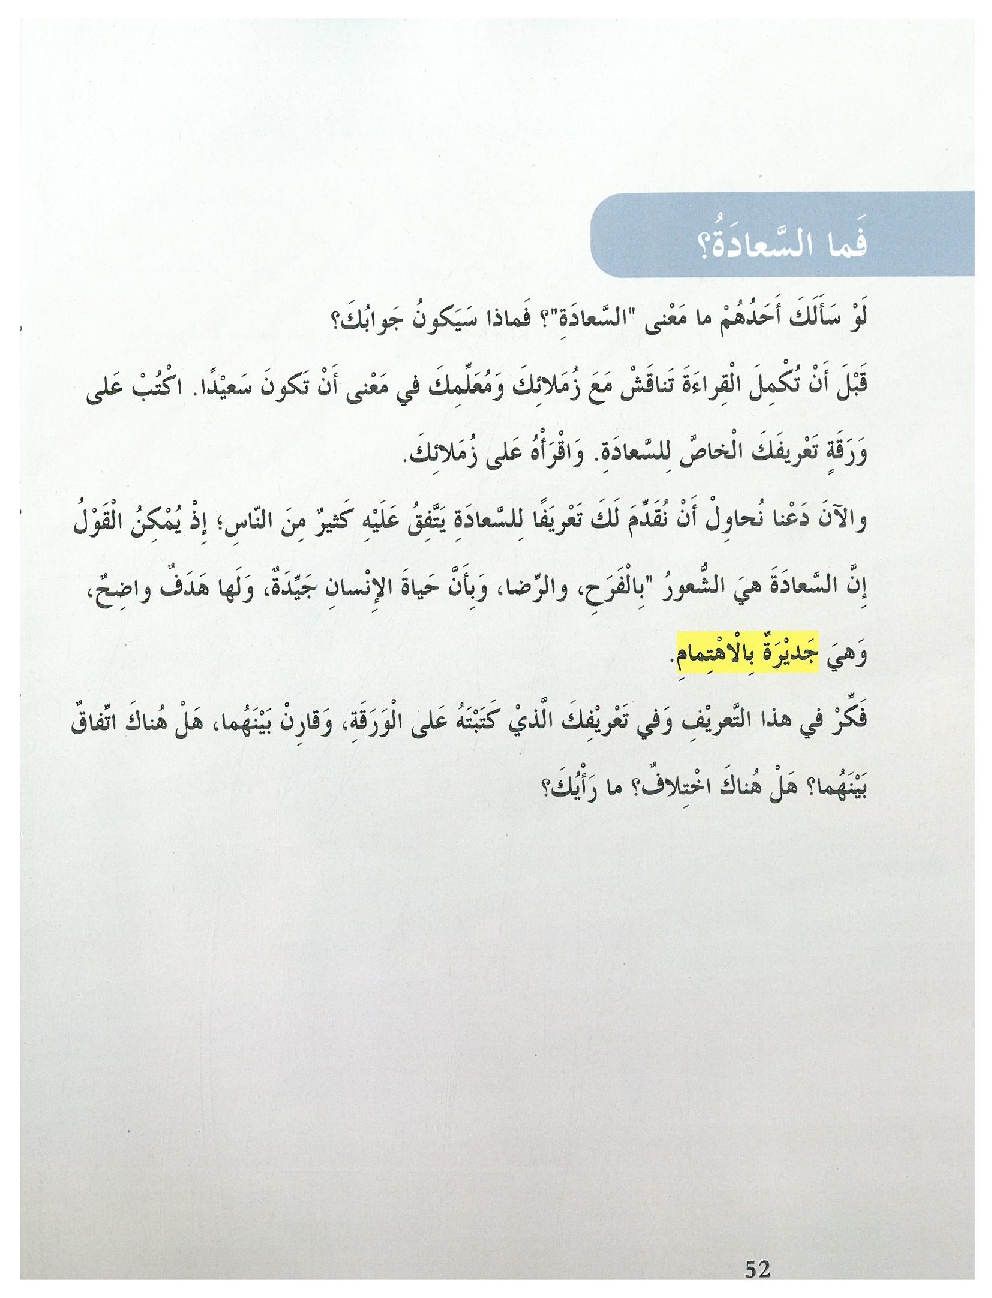 فَما السَّعادَةُ؟
لَوْ سَأَلَكَ أَحَدُهُمْ ما مَعْنى "السَّعادَةِ"؟ فَماذا سَيَكونُ جَوابُكَ؟
قَبْلَ أَنْ تُكْمِلَ الْقِراءَةَ تَناقَشْ مَعَ زُمَلائِكَ وَمُعَلِّمِكَ في مَعْنى أَنْ تَكونَ سَعيْدًا. اكْتُبْ عَلى
وَرَقَةٍ تَعْريفَكَ الْخاصَّ لِلسَّعادَةِ. وَاقْرَأْهُ عَلى زُمَلائِكَ.
والآنَ دَعْنا نُحاوِلْ أَنْ نُقَدِّمَ لَكَ تَعْريفًا لِلسَّعادَةِ يَتَّفِقُ عَلَيْهِ كَثيرٌ مِنَ النّاسِ؛ إِذْ يُمْكِنُ الْقَوْلُ
إِنَّ السَّعادَةَ هِيَ الشُّعورُ "بِالْفَرَحِ، والرِّضا، وَبِأَنَّ حَياةَ الإِنْسانِ جَيِّدَةٌ، وَلَها هَدَفٌ واضِحٌ،
وَهِيَ جَديْرَةٌ بِالْاهْتِمامِ.
فَكِّرْ في هذا التَّعريْفِ وَفي تَعْريْفِكَ الَّذيْ كَتَبْتَهُ عَلى الْوَرَقَةِ، وَقارِنْ بَيْنَهُما، هَلْ هُناكَ اتِّفاقٌ
بَيْنَهُما؟ هَلْ هُناكَ اخْتِلافٌ؟ ما رَأْيُكَ؟
52